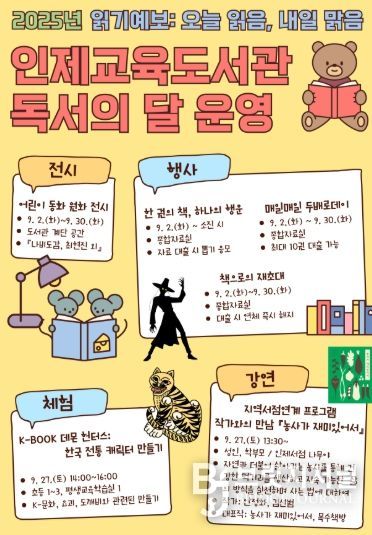 2025년 읽기예보: 오늘 읽음, 내일 맑음
인제교육도서관
독서의 달 운영
전시
어린이 동화 원화 전시
• 9. 2.(화)~9. 30.(화)
• 도서관 계단 공간
• 『나비도감, 최현진 외』
행사
한 권의 책, 하나의 행운
• 9. 2.(화) ~ 소진 시
• 종합자료실
• 자료 대출 시 뽑기 응모
매일매일 두배로데이
• 9. 2.(화) ~ 9. 30.(화)
• 종합자료실
• 최대 10권 대출 가능
책으로의 재초대
• 9. 2.(화)~9. 30.(화)
• 종합자료실
• 대출 시 연체 즉시 해지
체험
K-BOOK 데몬 헌터스:
한국 전통 캐릭터 만들기
• 9. 27.(토) 14:00~16:00
• 초등 1~3, 평생교육학습실 1
• K-문화, 요괴, 도깨비와 관련된 만들기
강연
지역서점연계 프로그램
작가와의 만남 『농사가 재미있어서』
• 9. 27.(토) 13:30~
• 성인, 학부모 / 인제서점 나무이
• 자연과 더불어 살아가는 농사를 통해
• 대표작: 농사가 재미있어서, 목수책방